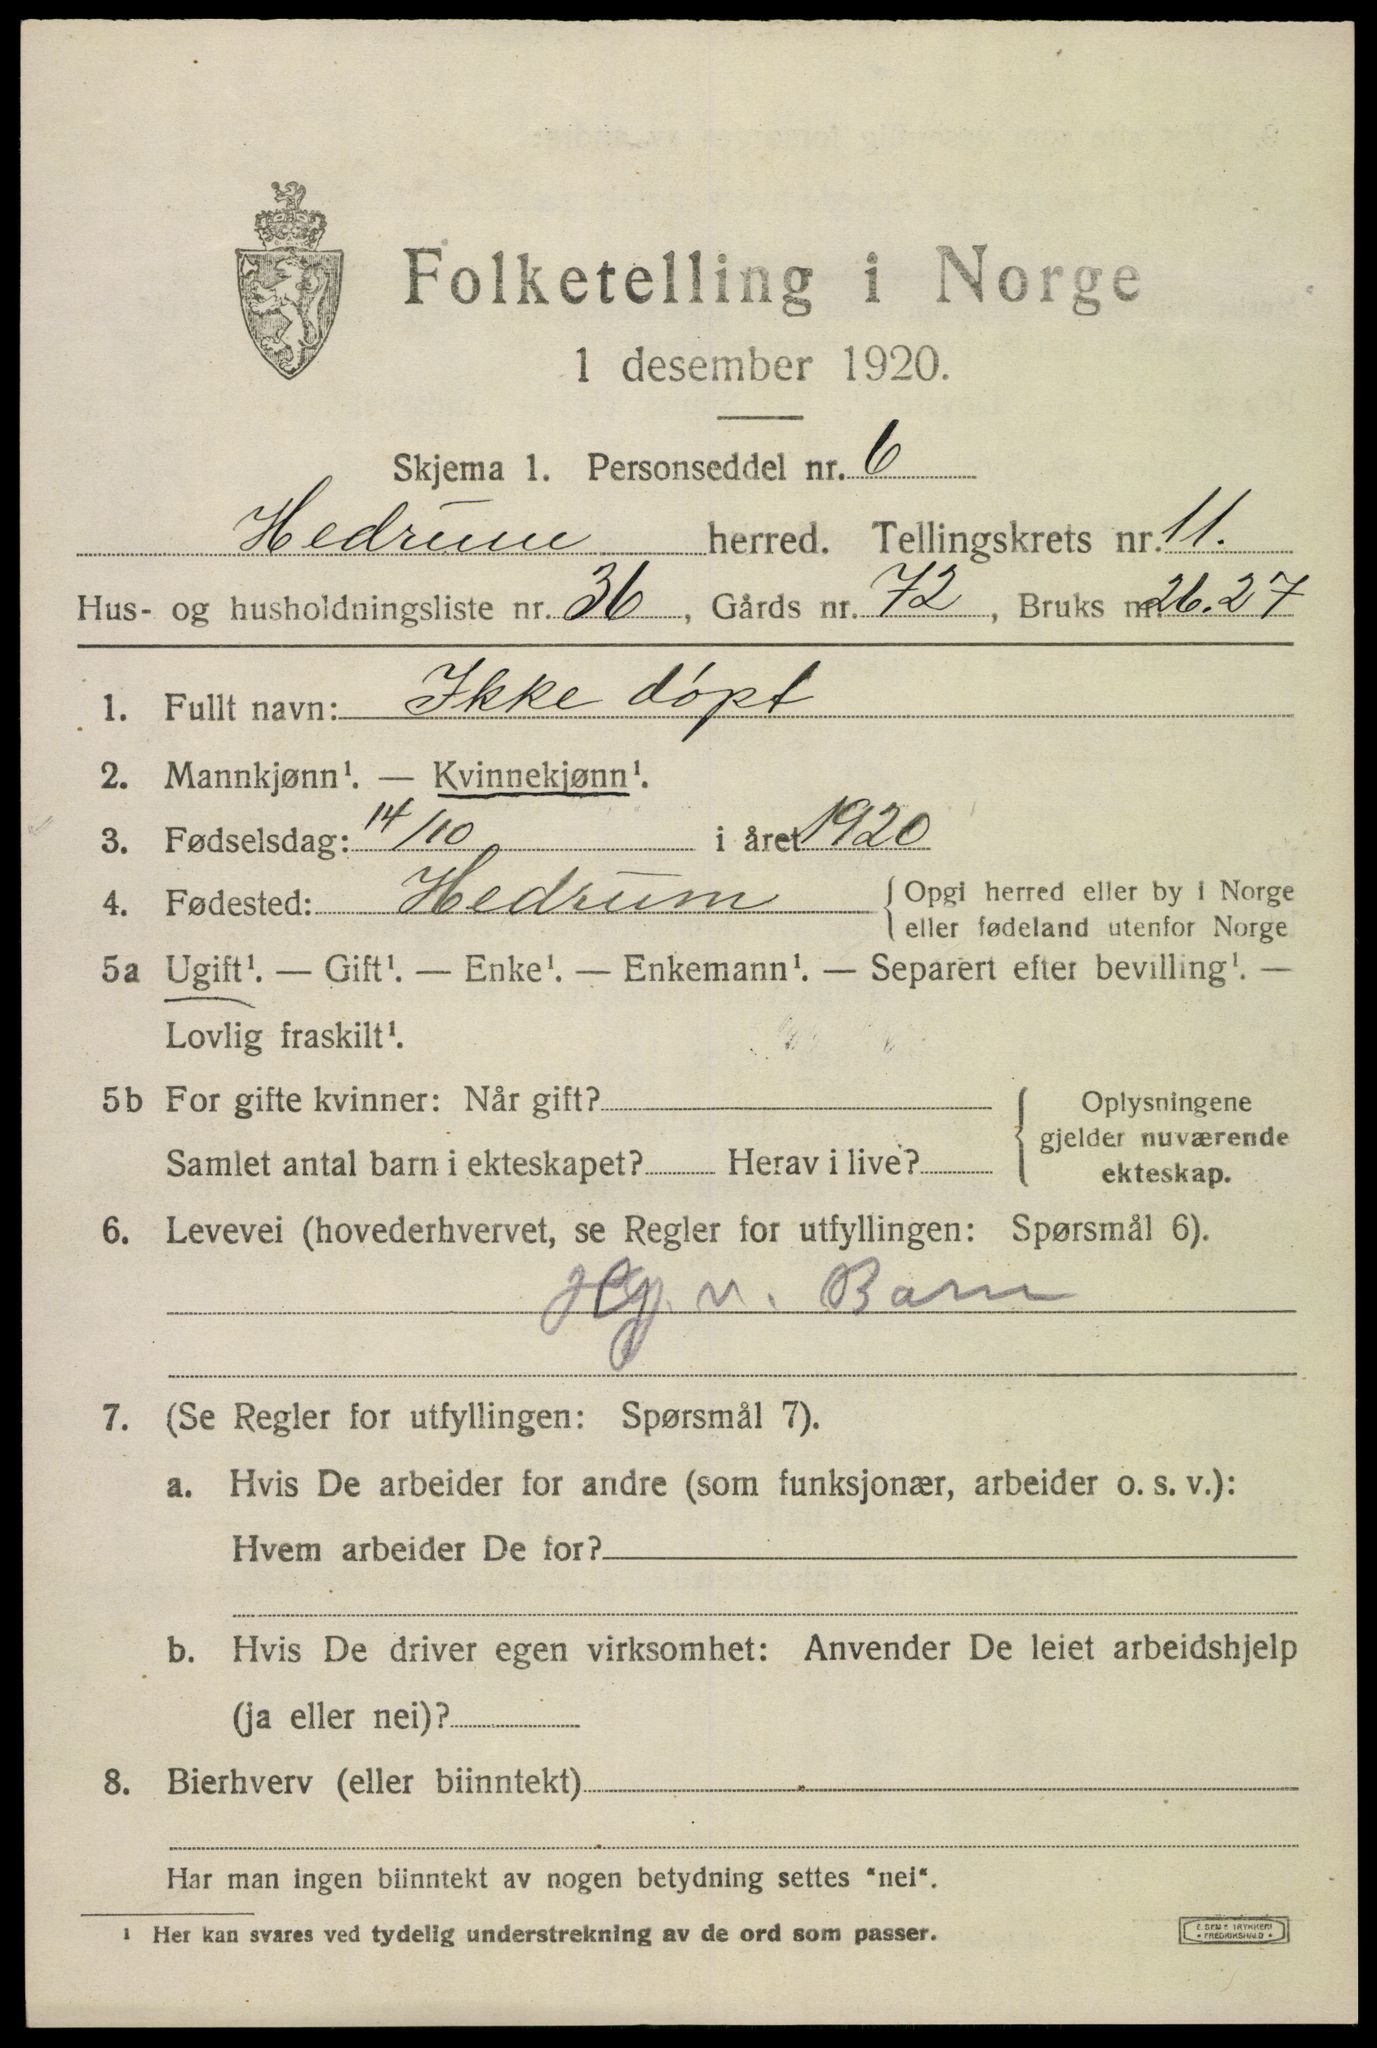 Folketelling i Norge
1 desember 1920.
Skjema 1. Personseddel nr. 6
Hedrum herred. Tellingskrets nr. 11.
Hus- og husholdningsliste nr. 36, Gårds nr. 72, Bruks nr. 26.27
1. Fullt navn: Ikke döpt
2. Mannkjønn¹. — Kvinnekjønn¹.
3. Fødselsdag: 14/10 i året 1920
4. Fødested: Hedrum { Opgi herred eller by i Norge
eller fødeland utenfor Norge
5a Ugift¹. — Gift¹. — Enke¹. — Enkemann¹. — Separert efter bevilling¹. —
Lovlig fraskilt¹.
5b For gifte kvinner: Når gift?
Samlet antal barn i ekteskapet? Herav i live?
{ Oplysningene
gjelder nuværende
ekteskap.
6. Levevei (hovederhvervet, se Regler for utfyllingen: Spørsmål 6).
Hj. v. Barn
7. (Se Regler for utfyllingen: Spørsmål 7).
a. Hvis De arbeider for andre (som funksjonær, arbeider o. s. v.):
Hvem arbeider De for?
b. Hvis De driver egen virksomhet: Anvender De leiet arbeidshjelp
(ja eller nei)?
8. Bierhverv (eller biinntekt)
Har man ingen biinntekt av nogen betydning settes "nei".
¹ Her kan svares ved tydelig understrekning av de ord som passer.
E. SEM'S TRYKKERI
• FREDRIKSHALD •